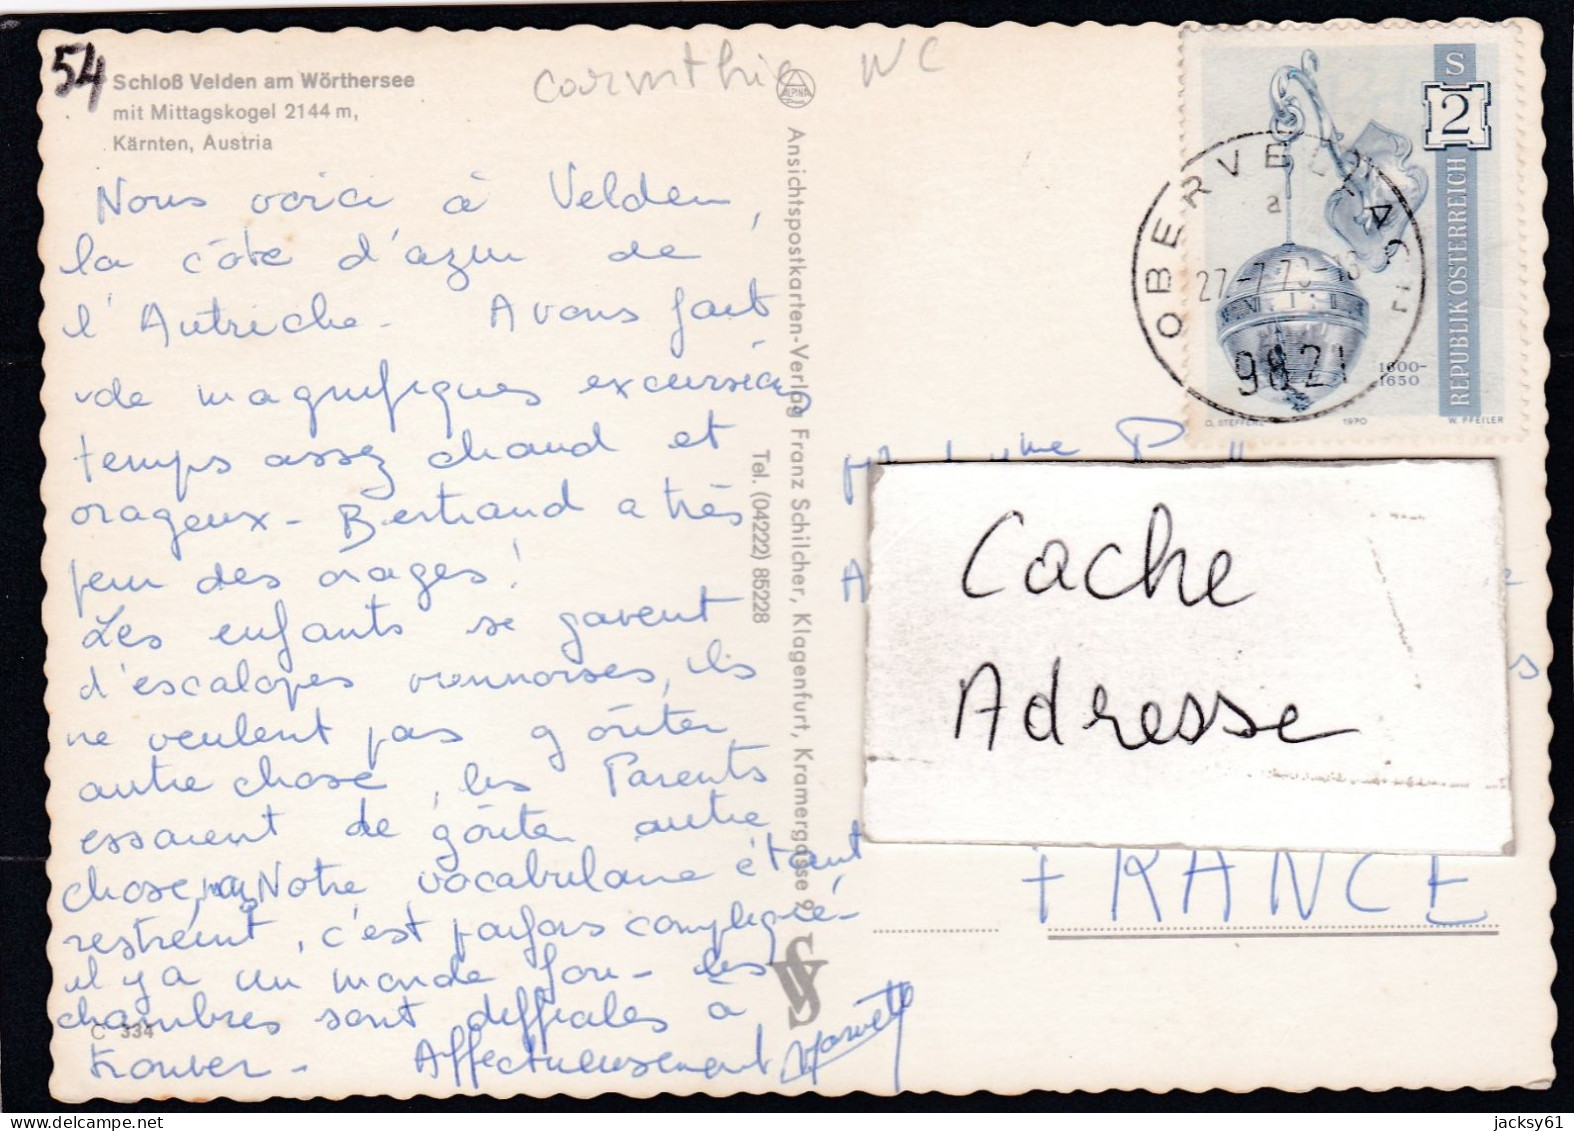 54
Schloß Velden am Wörthersee
mit Mittagskogel 2144 m,
Kärnten, Austria
WC
ALPINA
Nous voici à Velden,
la côte d'azur de
l'Autriche. Avons fait
de magnifiques excursions
temps assez chaud et
orageux - Bertrand a très
peur des orages !
Les enfants se gavent
d'escalopes viennoises, ils
ne veulent pas goûter
autre chose, les Parents
essaient de goûter autre
chose, mais Notre vocabulaire étant
restreint, c'est parfois compliqué -
il y a un monde fou - les
chambres sont difficiles à
trouver - Affectueusement
C 334
Ansichtspostkarten-Verlag Franz Schilcher, Klagenfurt, Kramergasse 9
Tel. (04222) 85228
S 2
REPUBLIK ÖSTERREICH
1600-
1650
O. STEFFERL 1970 W. PFEILER
OBERVELLACH
a
9821
Cache
Adresse
FRANCE
jacksy61